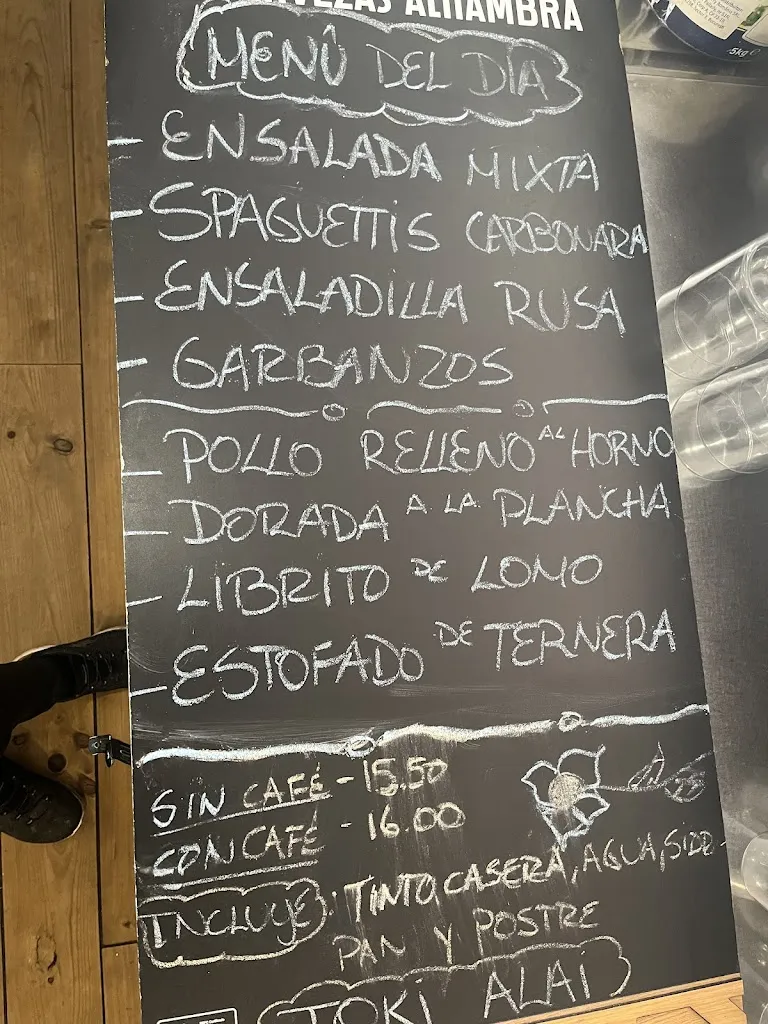 CERVEZAS ALHAMBRA
MENÚ DEL DÍA
- ENSALADA MIXTA
- SPAGUETTIS CARBONARA
- ENSALADILLA RUSA
- GARBANZOS
- POLLO RELLENO AL HORNO
- DORADA A LA PLANCHA
- LIBRITO DE LOMO
- ESTOFADO DE TERNERA
SIN CAFÉ - 15.50
CON CAFÉ - 16.00
INCLUYE: TINTO, CASERA, AGUA, SIDR-
PAN Y POSTRE
TOKI ALAI
5kg e